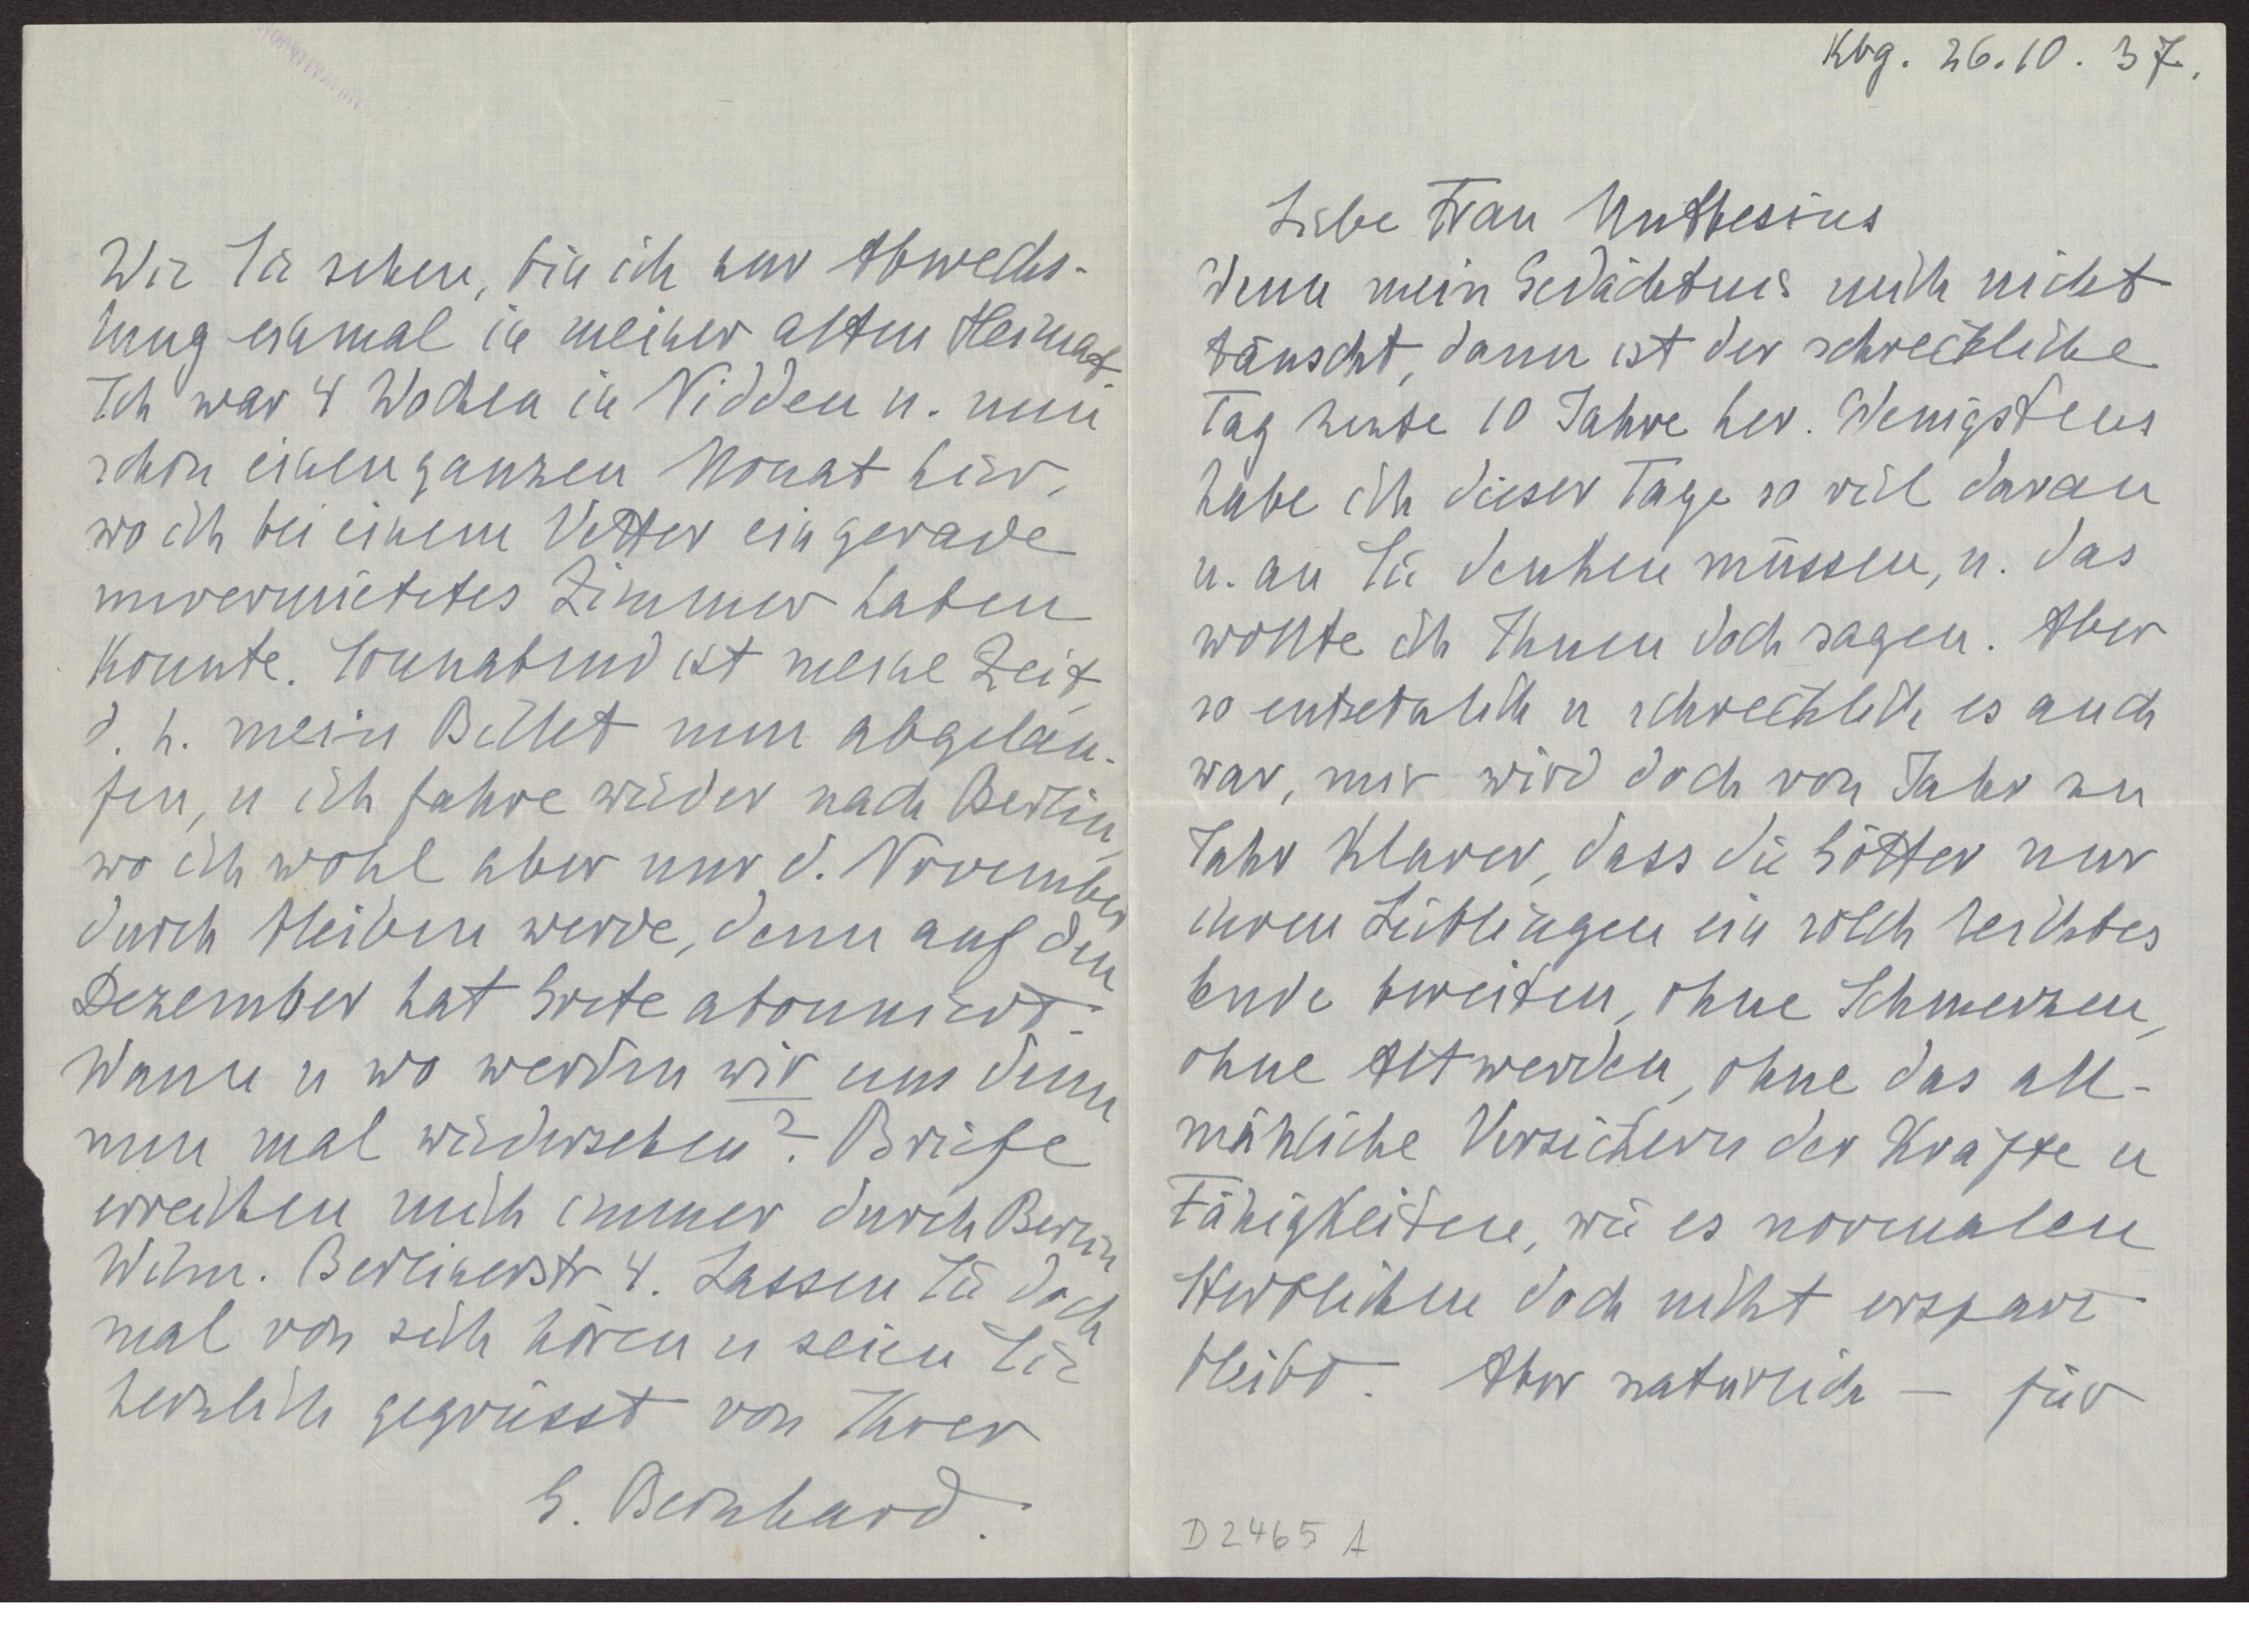 Kbg. 26.10.37.
Liebe Frau Muthesius
Wenn mein Gedächtnis mich nicht
täuscht, dann ist der schreckliche
Tag heute 10 Jahre her. Wenigstens
habe ich dieser Tage so viel daran
u. an Sie denken müssen, u. das
wollte ich Ihnen doch sagen. Aber
so entsetzlich u schrecklich es auch
war, mir wird doch von Jahr zu
Jahr klarer, dass die Götter nur
ihren Lieblingen ein solch leichtes
Ende bereiten, ohne Schmerzen,
ohne Altwerden, ohne das all-
mähliche Versickern der Kräfte u
Fähigkeiten, wie es normalen
Sterblichen doch nicht erspart
bleibt. Aber natürlich — für
D 2465 A
Wie Sie sehen, bin ich zur Abwechs-
lung einmal in meiner alten Heimat.
Ich war 4 Wochen in Nidden u. nun
schon einen ganzen Monat hier,
wo ich bei einem Vetter ein gerade
unvermietetes Zimmer haben
konnte. Sonnabend ist meine Zeit,
d. h. mein Billet nun abgelau-
fen, u ich fahre wieder nach Berlin,
wo ich wohl aber nur d. November
durch bleiben werde, denn auf den
Dezember hat Grete abonniert.
Wann u wo werden wir uns denn
nun mal wiedersehen? Briefe
erreichen mich immer durch Berlin
Wilm. Berlinerstr 4. Lassen Sie doch
mal von sich hören u seien Sie
herzlich gegrüsst von Ihrer
G. Bernhard.